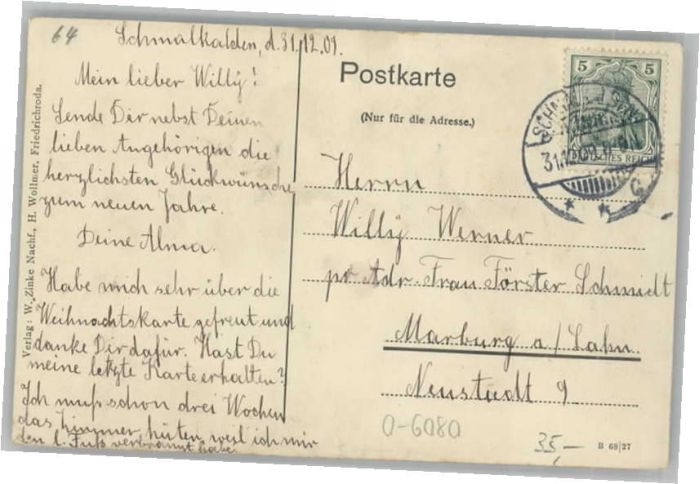 64
Schmalkalden, d. 31.12.09.
Mein lieber Willy!
Sende Dir nebst Deinen
lieben Angehörigen die
herzlichsten Glückwünsche
zum neuen Jahre.
Deine Alma.
Habe mich sehr über die
Weihnachtskarte gefreut und
danke Dir dafür. Hast Du
meine letzte Karte erhalten?
Ich muß schon drei Wochen
das Zimmer hüten, weil ich mir
den l. Fuß verbrannt habe.
Verlag: W. Zinke Nachf., H. Wollmer, Friedrichroda.
Postkarte
(Nur für die Adresse.)
5 5
DEUTSCHES REICH
31.12.09
Herrn
Willy Werner
pr. Adr. Frau Förster Schmidt
Marburg a/Lahn.
Neustadt 9.
O-6080
35,-
B 68/27